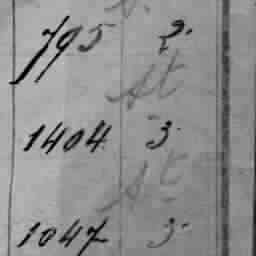 795 2.
St
1404 3.
St
1047 3.